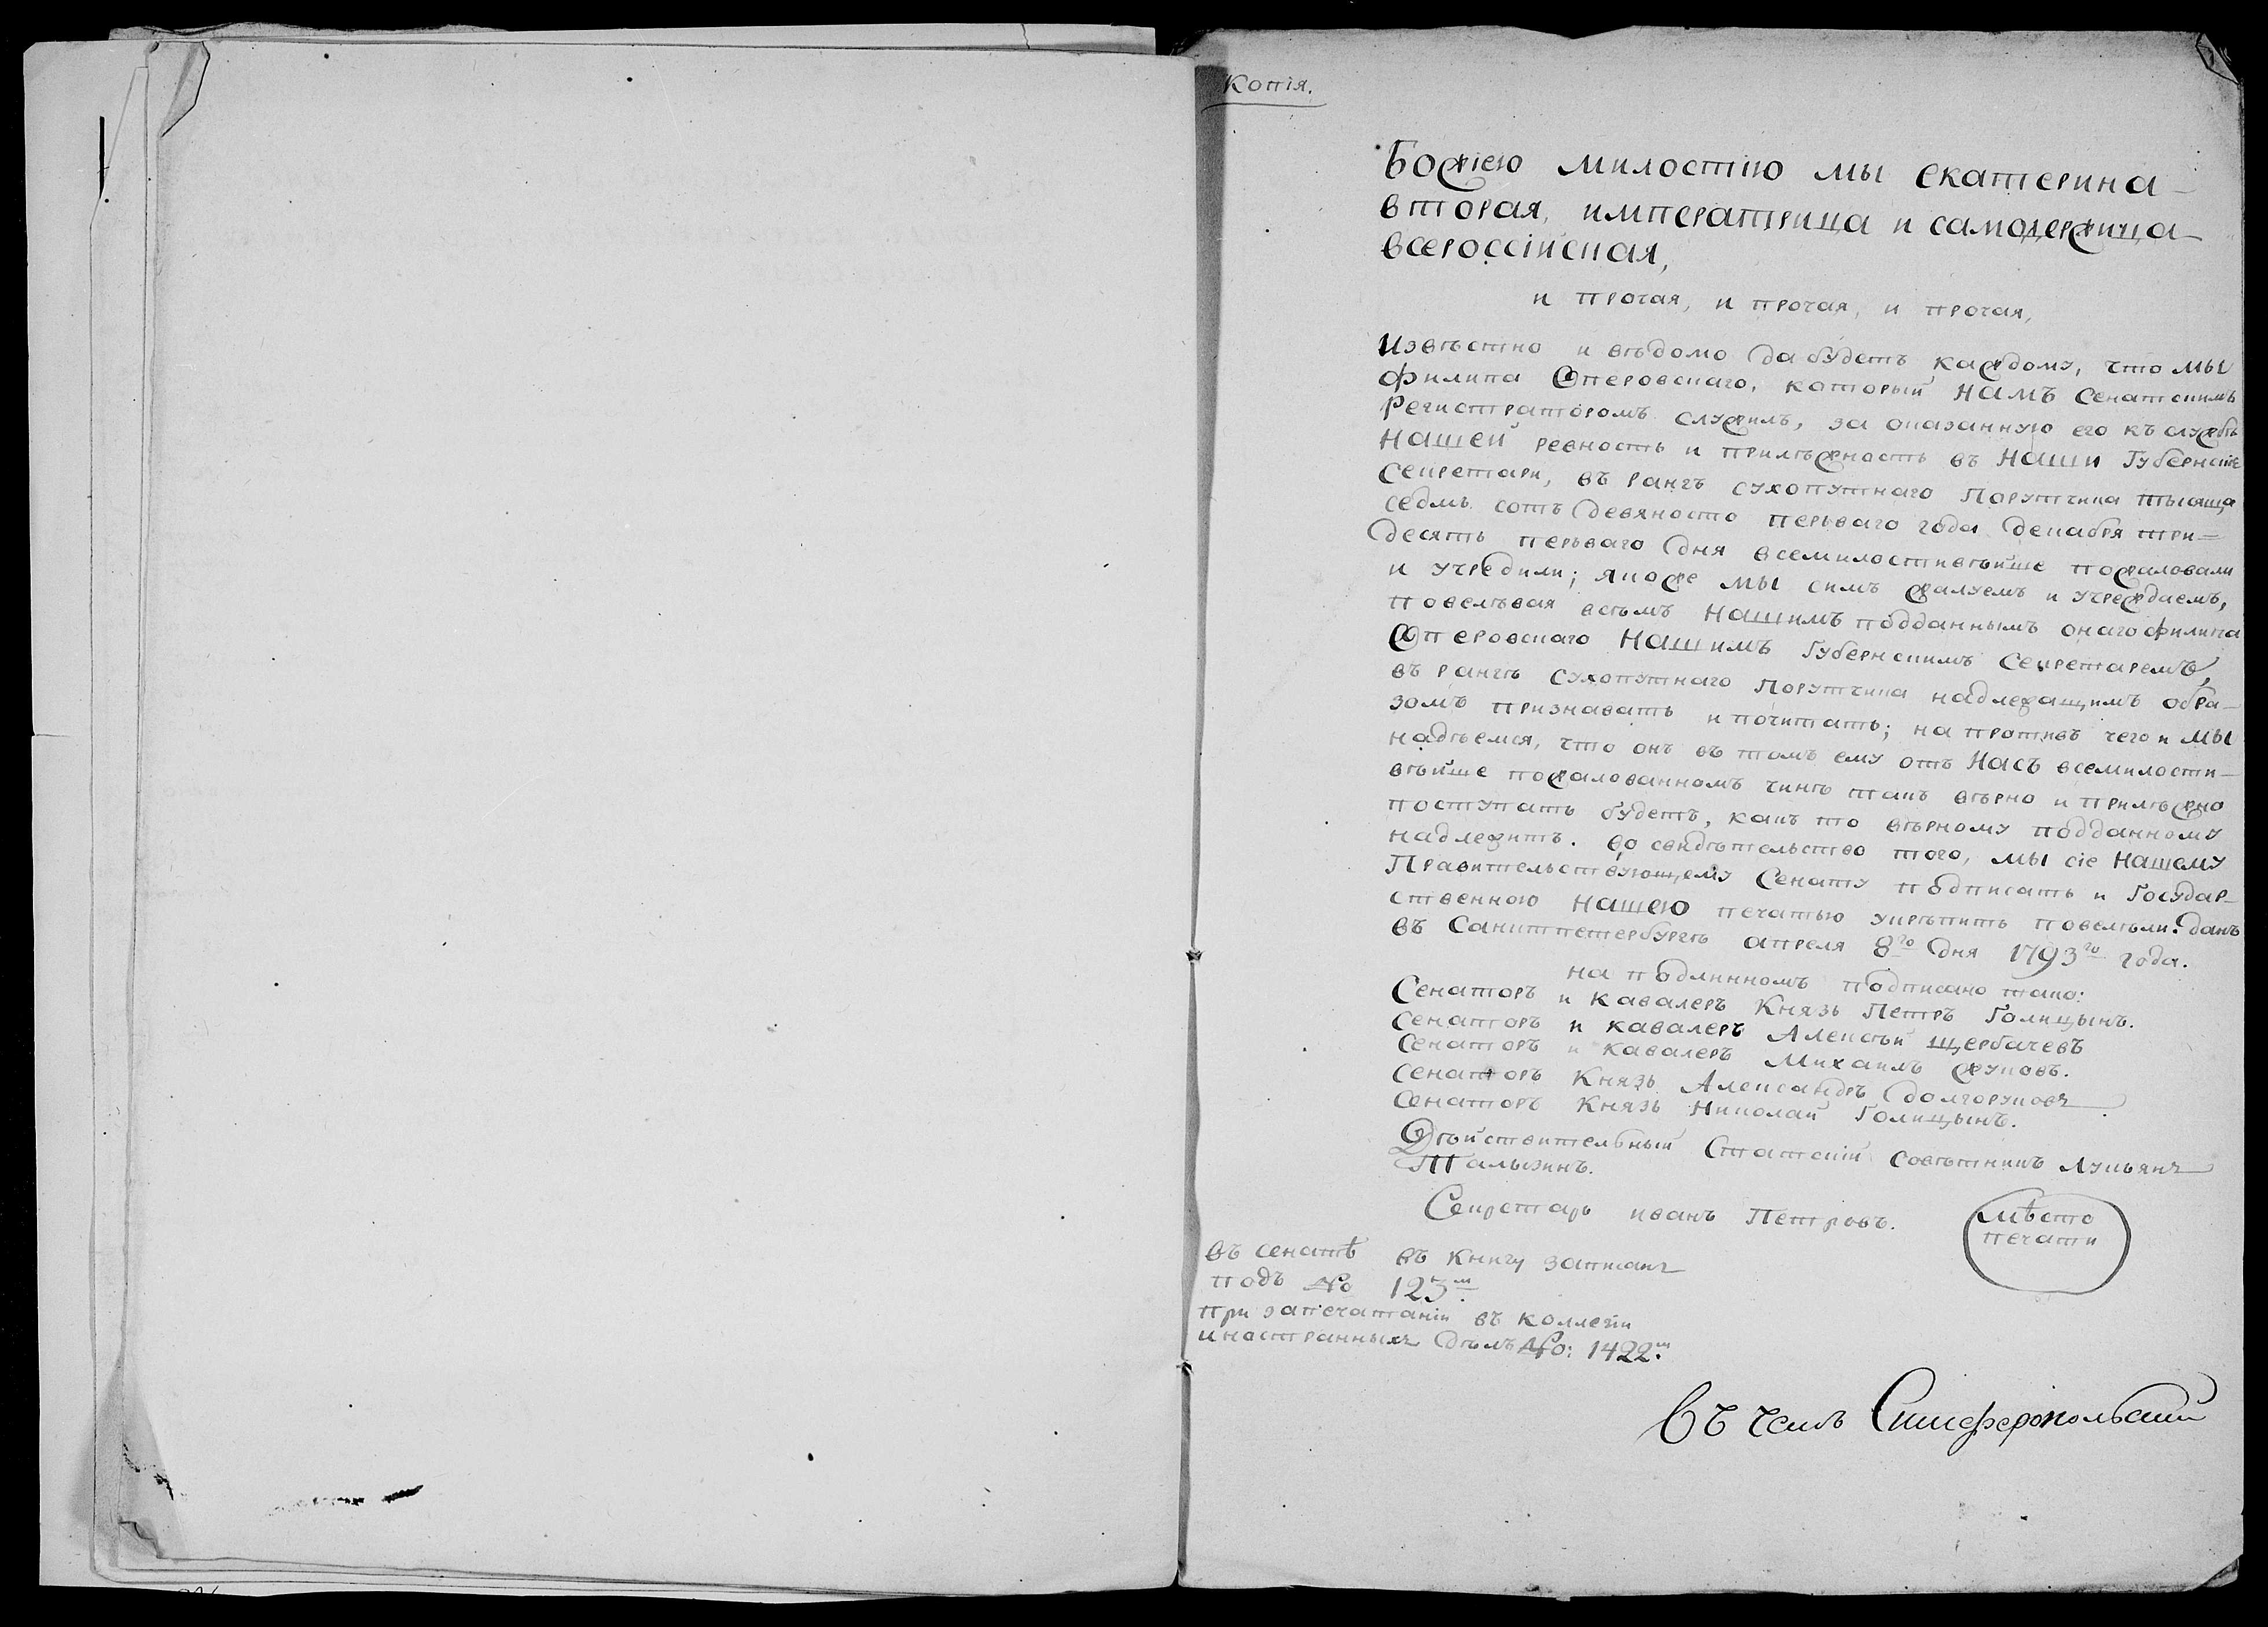 Копія.
Божіею милостію мы екатерина
вторая, императрица и самодержица
всероссійская,
и прочая, и прочая, и прочая,
Извѣстно и вѣдомо да будетъ каждому, что мы
Филипа Оперовскаго, который намъ Сенатскимъ
Регистраторомъ служилъ, за оказанную его къ службѣ
нашей ревность и прилѣжность въ наши Губернскіе
Секретари, въ рангъ сухопутнаго Порутчика тысяща
седмь сотъ девяносто перьваго года декабря три-
десять перьваго дня всемилостивѣйше пожаловали
и учредили; якоже мы симъ жалуемъ и учреждаемъ,
повелѣвая всѣмъ нашимъ подданнымъ онаго филипа
Оперовскаго нашимъ Губернскимъ Секретаремъ,
въ рангѣ сухопутнаго Порутчика надлежащимъ обра-
зомъ признавать и почитать; на противъ чего и мы
надѣемся, что онъ въ томъ ему отъ насъ всемилости-
вѣйше пожалованномъ чинѣ такъ вѣрно и прилѣжно
поступать будетъ, какъ то вѣрному подданному
надлежитъ. во свидѣтельство того, мы сіе нашему
Правительствующему Сенату подписать и Государ-
ственною нашею печатью укрѣпить повелѣли. данъ
въ Санктпетербургѣ апреля 8го дня 1793го года.
на подлинномъ подписано тако:
Сенаторъ и кавалеръ Князь Петръ Голицынъ.
Сенаторъ и кавалеръ Алексѣй Щербачевъ
Сенаторъ и кавалеръ Михаилъ Жуковъ.
Сенаторъ Князь Александръ долгоруковъ
Сенаторъ Князь Николай Голицынъ.
Дѣйствительный Статскій совѣтникъ Лукьянъ
Талызинъ.
Секретарь иванъ Петровъ.
мѣсто
печати
въ сенатѣ въ книгу записанъ
подъ № 123м.
при запечатаніи въ коллегіи
иностранныхъ дѣлъ №: 1422.м
Въ чемъ Симферопольскій